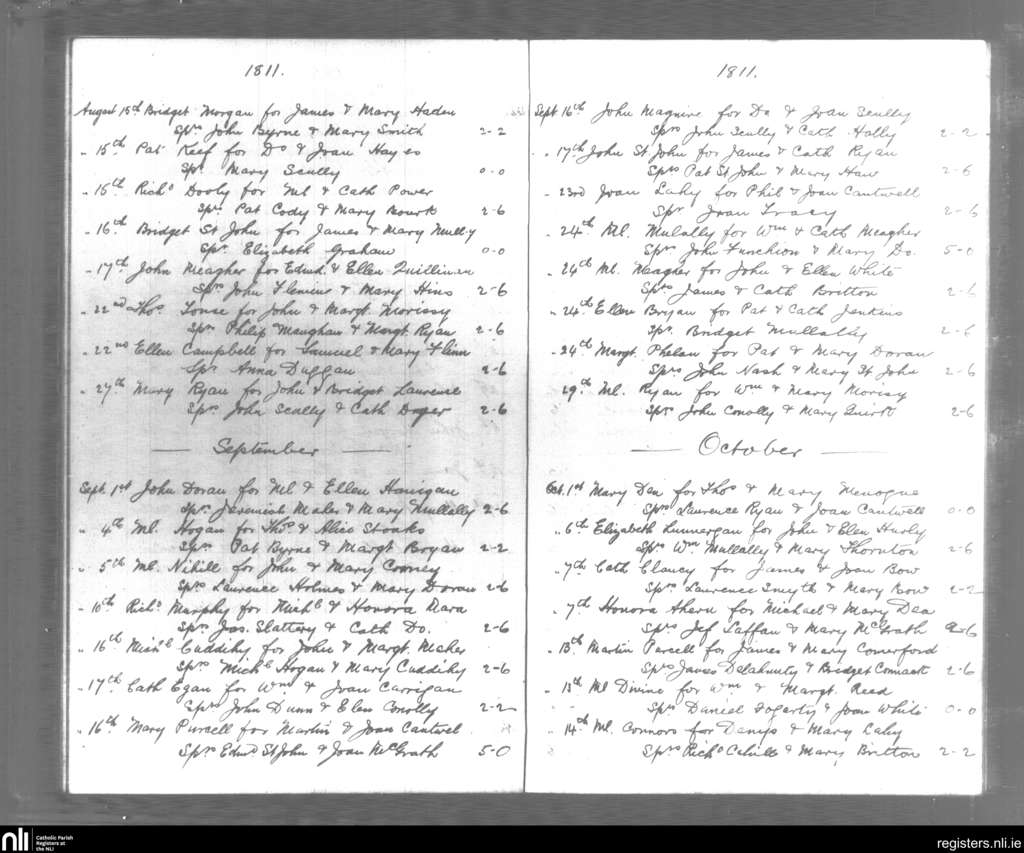 1811.
August 15th Bridget Morgan for James & Mary Haden
Sprs John Byrne & Mary Smith 2-2
" 15th Pat Keef for Do & Joan Hayes
Spr Mary Scully 0-0
" 16th Richd Dooly for Ml & Cath Power
Sprs Pat Cody & Mary Bourk 2-6
" 16th Bridget St John for James & Mary Mull-y
Spr Elizabeth Graham 0-0
" 17th John Meagher for Edmd. & Ellen Quillinan
Sprs John Fleming & Mary Hins 2-6
" 22nd Thos for John & Margt. Morissy
Sprs Philip Maughan & Margt Ryan 2-6
" 22nd Ellen Campbell for Samuel & Mary Flinn
Spr Anna Duggan 2-6
" 27th Mary Ryan for John & Bridget Laurence
Sprs John Scully & Cath 2-6
September
Sept. 1st John Doran for Ml & Ellen Hanigan
Sprs Jeremiah Maher & Mary Mullally 2-6
" 4th Ml. Hogan for Thos & Alice
Sprs Pat Byrne & Margt Bryan 2-2
" 5th Ml. Nihill for John & Mary Cooney
Sprs Laurence Holmes & Mary Doran 2-6
" 10th Richd Murphy for Michl & Honora Dara
Sprs Jas. Slattery & Cath Do. 2-6
" 16th Michl Cuddihy for John & Margt. Maher
Sprs Michl Hogan & Mary Cuddihy 2-6
" 17th Cath Egan for Wm & Joan Carrigan
Sprs John Dunn & Elen Conolly 2-2
" 16th Mary Purcell for Martin & Joan Cantwel
Sprs Edmd St John & Joan McGrath 5-0
1811.
Sept 16th John Maguire for Do & Joan Scully
Sprs John Scully & Cath Holly 2-2
" 17th John St John for James & Cath Ryan
Sprs Pat St John & Mary Haw 2-6
" 23rd Joan Lahy for Phil & Joan Cantwell
Spr Joan Tracy 2-6
" 24th Ml. Mulally for Wm & Cath Meagher
Sprs John Funchion & Mary Do. 5-0
" 24th Ml. Meagher for John & Ellen White
Sprs James & Cath Britton 2-6
" 24th Ellen Bryan for Pat & Cath Jenkins
Spr. Bridget Mullally 2-6
" 24th Margt. Phelan for Pat & Mary Doran
Sprs John Nash & Mary St John 2-6
29th Ml. Ryan for Wm & Mary Morisy
Sprs John Conolly & Mary Quirk 2-6
October
Oct. 1st Mary Dea for Thos & Mary Menogue
Sprs Laurence Ryan & Joan Cantwell 0-0
" 6th Elizabeth Lunnergan for John & Elen Hurly
Sprs Wm Mullally & Mary Thornton 2-6
" 7th Cath Clancy for James & Joan Bow
Sprs Laurence Smyth & Mary Bow 2-2
" 7th Honora Ahern for Michael & Mary Dea
Sprs Jef Laffan & Mary McGrath 2-6
" 13th Martin Purcell for James & Mary Comerford
Sprs James Delahunty & Bridget 2-6
" 13th Ml Divine for Wm & Margt. Read
Sprs Daniel Fogerty & Joan White 0-0
" 14th Ml. Connors for Denys & Mary Lahy
Sprs Richd Cahill & Mary Britton 2-2
nli
Catholic Parish
Registers at
the NLI
registers.nli.ie